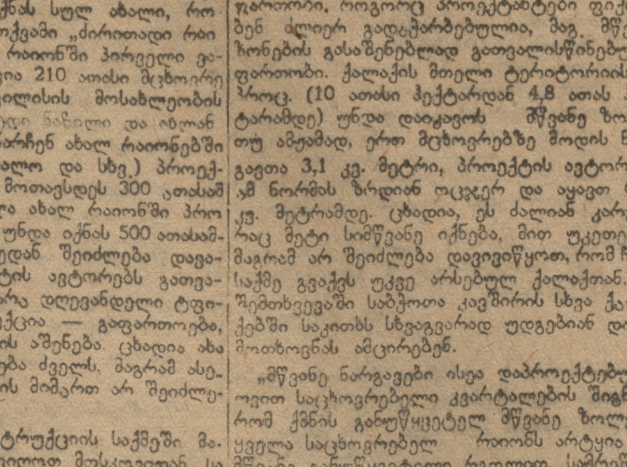 ქნას სულ ახალი, რო-
ოქვამი „ძირითადი რაი
რაიონში პირველი ვა-
ცია 210 ათასი მცხოვრე
ილისის მოსახლეობის
ედი ნაწილი და ახლან
არჩენ ახალ რაიონებში
ალო და სხვ.) პროექ-
მოთავსდეს 300 ათასამ
ლა ახალ რაიონში პრო
უნდა იქნას 500 ათასამ-
ედან შეიძლება დავა-
ტის ავტორებს გათვა-
არა დღევანდელი ტფი-
ქცია — გაფართოება,
ის აშენება. ცხადია ახა
ება ძველს, მაგრამ ასე-
ის მიმართ არ შეიძლე-
ტრუქციის საქმეში მა-
ფართობი, როგორც პროექტანტები
ბენ ძლიერ გადაჭარბებულია, მაგ.
ზონების გასაშენებლად გათვალისწინებუ
ფართობი. ქალაქის მთელი ტერიტორიის
პროც. (10 ათასი ჰექტარდან 4,8 ათას
ტარამდე) უნდა დაიკავოს მწვანე ზო
თუ ამჟამად, ერთ მცხოვრებზე მოდის
გავთა 3,1 კვ. მეტრი, პროექტის ავტორ
ამ ნორმას ზრდიან ოცჯერ და აყავთ
კვ. მეტრამდე. ცხადია, ეს ძალიან კარ
რაც მეტი სიმწვანე იქნება, მით უკეთე
მაგრამ არ შეიძლება დავივიწყოთ, რომ ჩ
საქმე გვაქვს უკვე არსებულ ქალაქთან.
შემთხვევაში საბჭოთა კავშირის სხვა ქა
ქებში საკითხს სხვაგვარად უდგებიან დ
მოთხოვნას ამცირებენ.
„მწვანე ნარგავები ისეა დაპროექტებუ
ოვით საცხოვრებელი კვარტალების შიგნ
რომ ქმნის განუწყვეტელ მწვანე ზოლ
ყველა საცხოვრებელ რაიონს არტყია